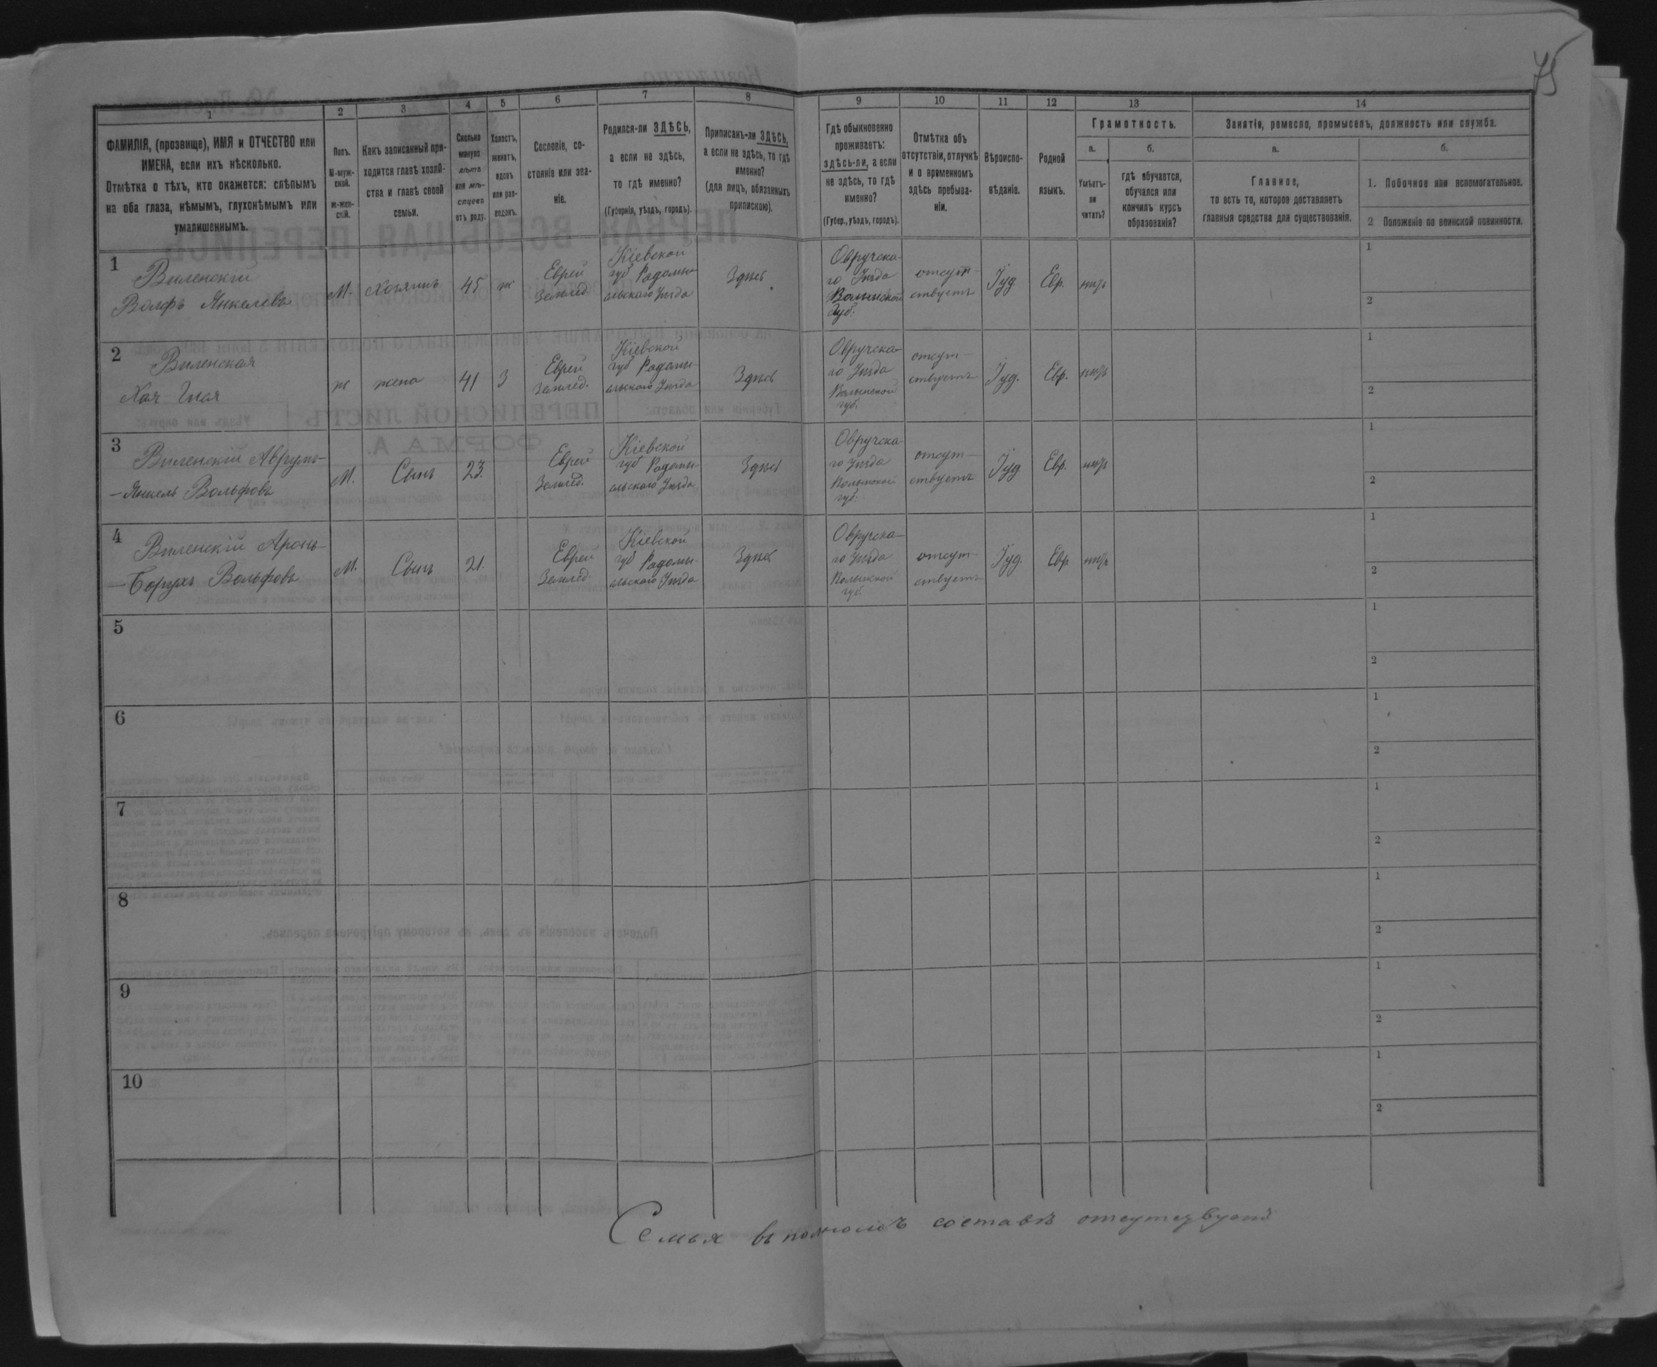 75
1
2
3
4
5
6
7
8
9
10
11
12
13
14
ФАМИЛІЯ, (прозвище), ИМЯ и ОТЧЕСТВО или
ИМЕНА, если ихъ нѣсколько.
Отмѣтка о тѣхъ, кто окажется: слѣпымъ
на оба глаза, нѣмымъ, глухонѣмымъ или
умалишеннымъ.
Полъ.
М-муж-
ской.
ж-жен-
скій.
Какъ записанный при-
ходится главѣ хозяй-
ства и главѣ своей
семьи.
Сколько
минуло
лѣтъ
или мѣ-
сяцевъ
отъ роду.
Холостъ,
женатъ,
вдовъ
или раз-
веденъ.
Сословіе, со-
стояніе или зва-
ніе.
Родился-ли ЗДѢСЬ,
а если не здѣсь,
то гдѣ именно?
(Губернія, уѣздъ, городъ).
Приписанъ-ли ЗДѢСЬ,
а если не здѣсь, то гдѣ
именно?
(для лицъ, обязанныхъ
припискою).
Гдѣ обыкновенно
проживаетъ:
здѣсь-ли, а если
не здѣсь, то гдѣ
именно?
(Губер., уѣздъ, городъ).
Отмѣтка объ
отсутствіи, отлучкѣ
и о временномъ
здѣсь пребыва-
ніи.
Вѣроиспо-
вѣданіе.
Родной
языкъ.
Грамотность.
а.
б.
Умѣетъ-
ли
читать?
гдѣ обучается,
обучался или
кончилъ курсъ
образованія?
Занятіе, ремесло, промыселъ, должность или служба.
а.
б.
Главное,
то есть то, которое доставляетъ
главныя средства для существованія.
1. Побочное или вспомогательное.
2 Положеніе по воинской повинности.
1
Виленскій
Волфъ Янкелевъ
М.
хозяинъ
45
ж
Еврей
Землед.
Кіевской
губ Радомы-
сльскаго Уѣзда
Здѣсь
Овручска-
го Уѣзда
Волынской
Губ.
отсут-
ствуетъ
Іуд.
Евр.
1
2
2
Виленская
Хая
ж
жена
41
Еврей
Землед.
Кіевской
губ Радомы-
сльскаго Уѣзда
Здѣсь
Овручска-
го Уѣзда
Волынской
губ.
отсут-
ствуетъ
Іуд.
Евр.
1
2
3
Виленскій Аврумъ-
Вольфовъ
М.
Сынъ
23.
Еврей
Землед.
Кіевской
губ Радомы-
сльскаго Уѣзда
Здѣсь
Овручска-
го Уѣзда
Волынской
губ.
отсут-
ствуетъ
Іуд
Евр.
1
2
4
Виленскій Аронъ-
-Борухъ Вольфовъ
М.
Сынъ
21.
Еврей
Землед.
Кіевской
губ Радомы-
сльскаго Уѣзда
Здѣсь
Овручска-
го Уѣзда
Волынской
губ.
отсут-
ствуетъ
Іуд.
Евр
1
2
5
1
2
6
1
2
7
1
2
8
1
2
9
1
2
10
1
2
Семья въ полномъ составѣ отсутствуетъ